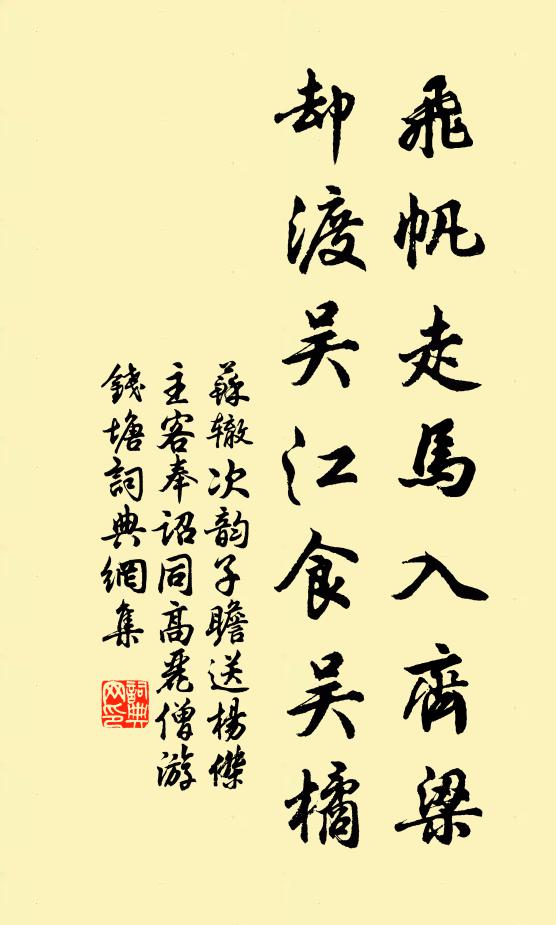 飛帆走馬入齊梁
却渡吴江食吴橘
蘇辙次韵子瞻送楊傑
主客奉詔同高麗僧游
錢塘詞典網集
詞典
网印